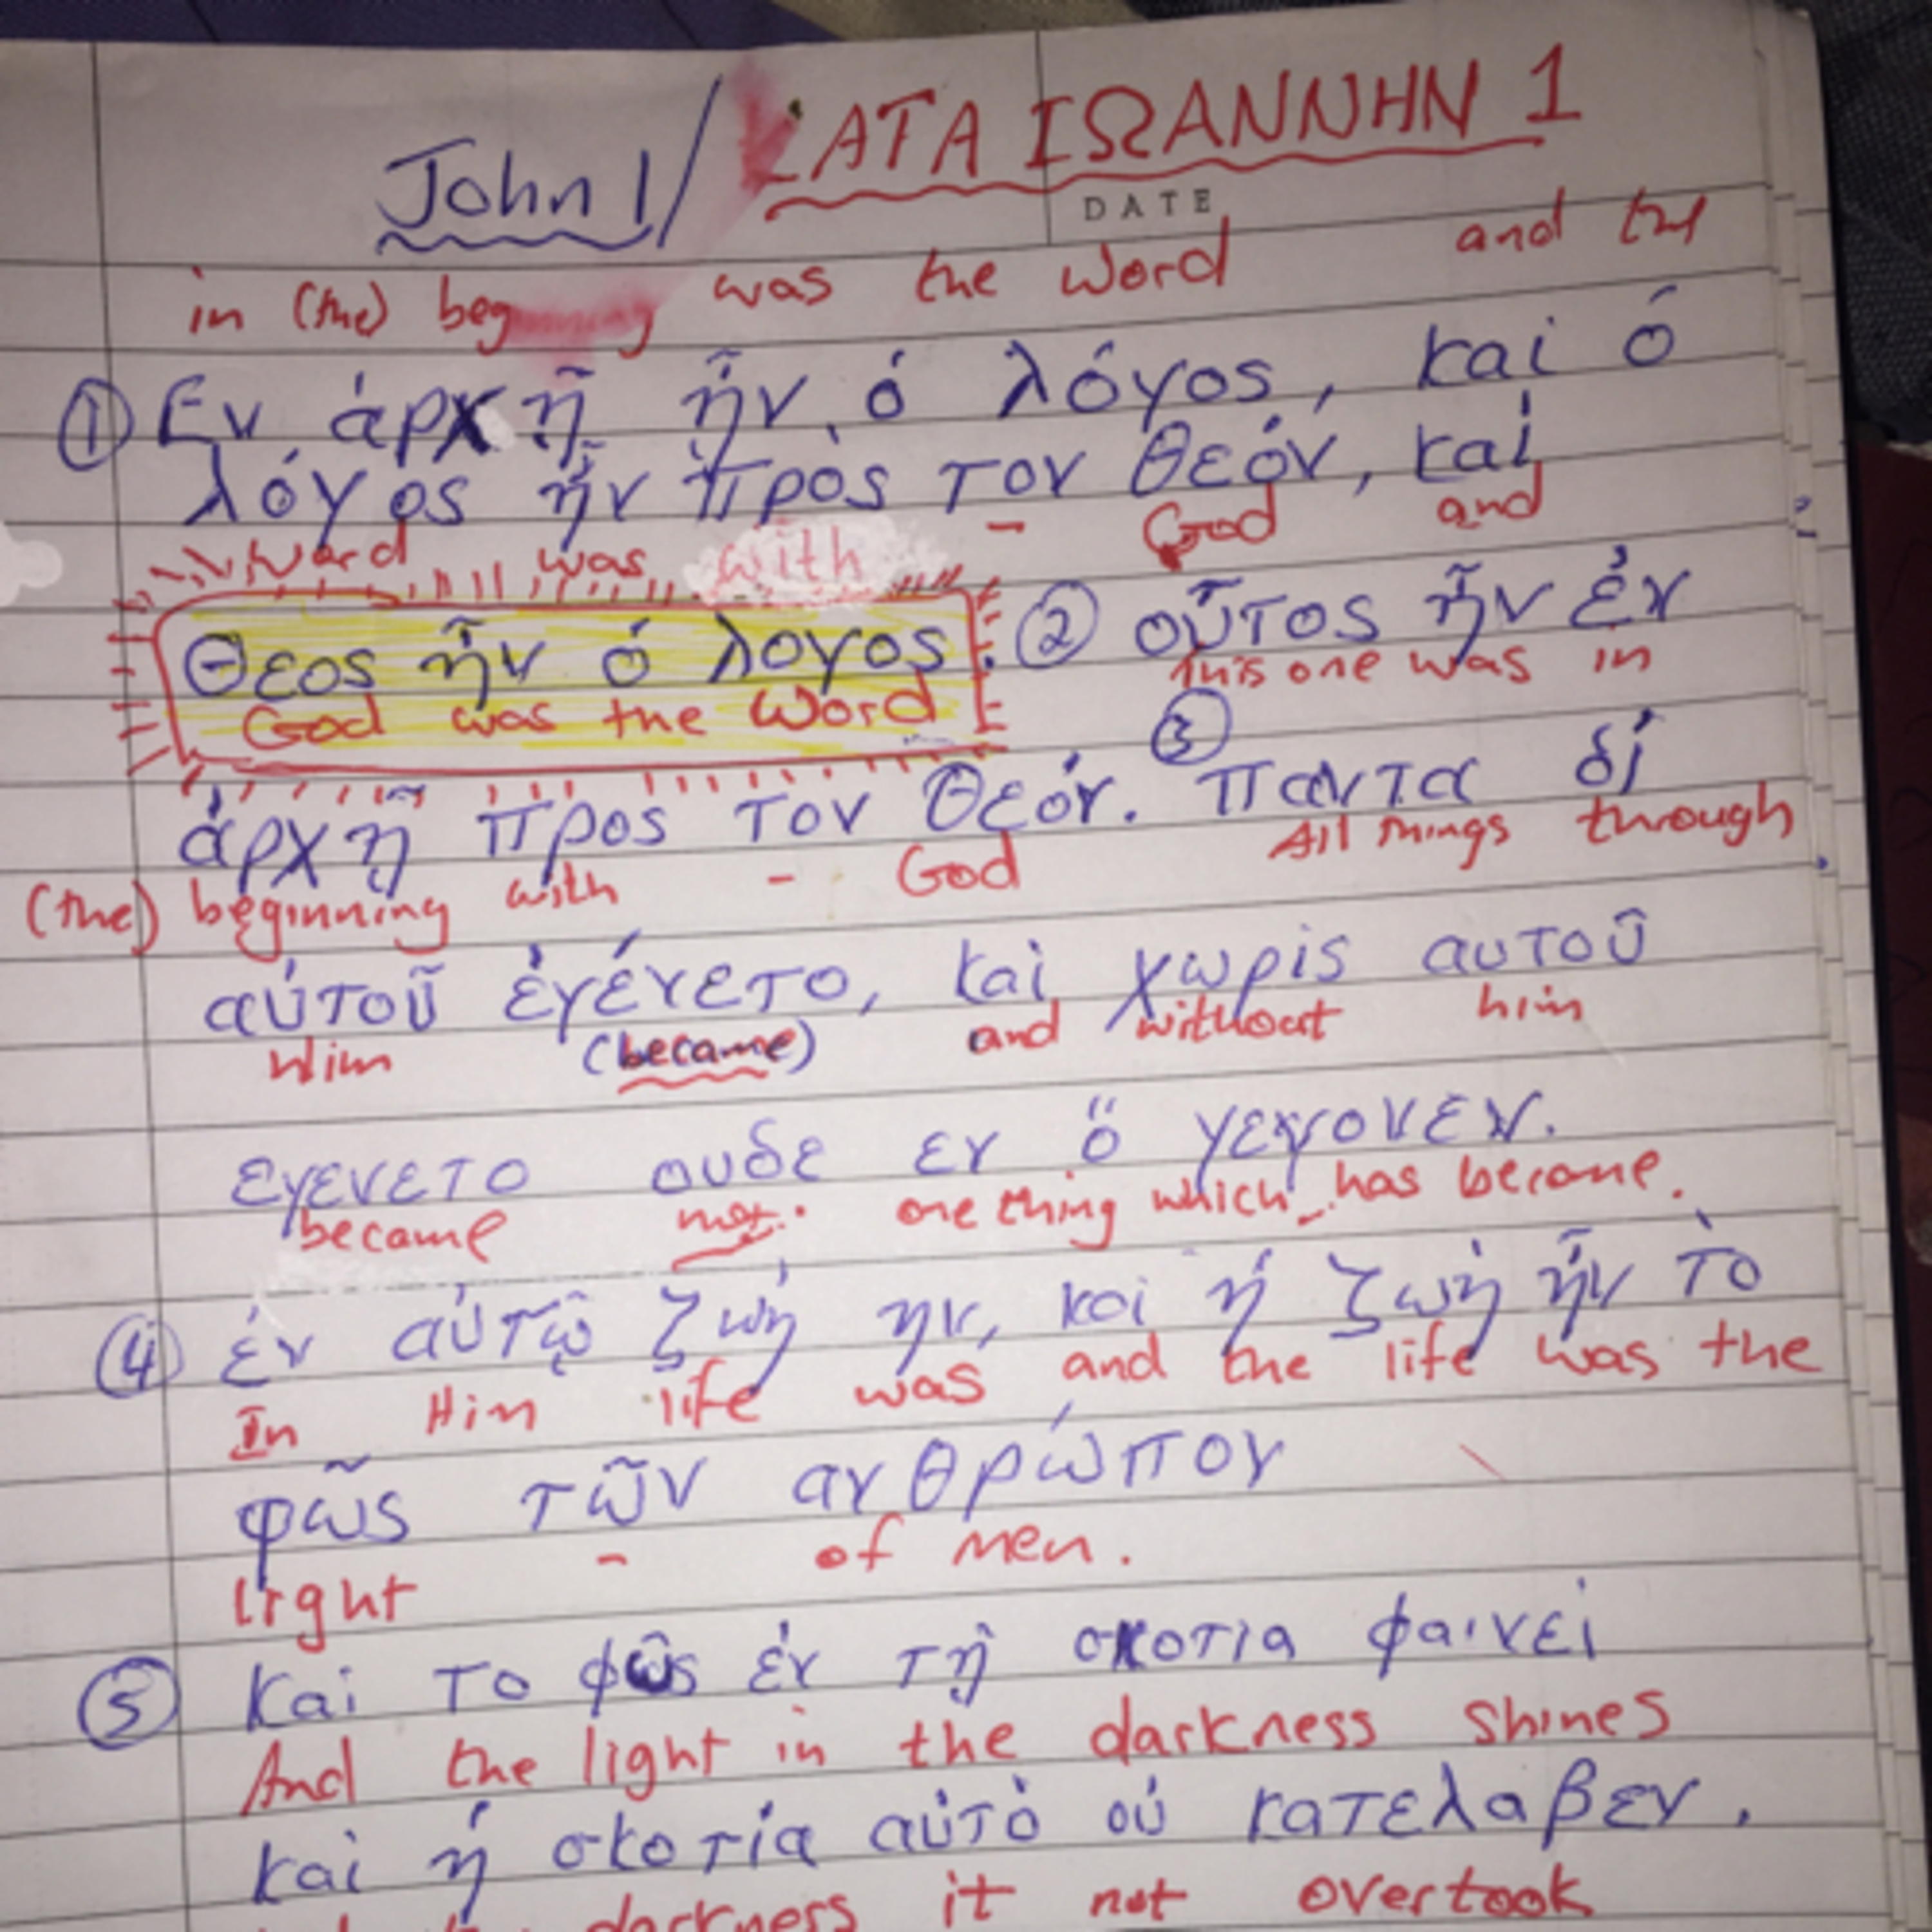 John 1/ ΚΑΤΑ ΙΩΑΝΝΗΝ 1
DATE
in (the) beginning was the Word and the
① Εν ἀρχῇ ἦν ὁ λόγος, καὶ ὁ
λόγος ἦν πρὸς τον θεόν, καὶ
Word was with - God and
Θεος ἦν ὁ λογος. ② οὗτος ἦν ἐν
God was the Word This one was in
③
ἀρχῇ προς τον Θεόν. παντα δἰ
All things through
(the) beginning with - God
αὐτοῦ ἐγένετο, καὶ χωρὶς αυτοῦ
Him (became) and without him
εγενετο ουδε εν ὅ γεγονεν.
became not. one thing which has become.
④ ἐν αὐτῷ ζωή ην, και ἡ ζωὴ ἦν τὸ
In Him life was and the life was the
φῶς τῶν ανθρώπον
light - of men.
⑤ Και το φῶς ἐν τῇ σκοτια φαινει
And the light in the darkness shines
και ἡ σκοτία αὐτὸ οὐ κατελαβεν.
darkness it not overtook